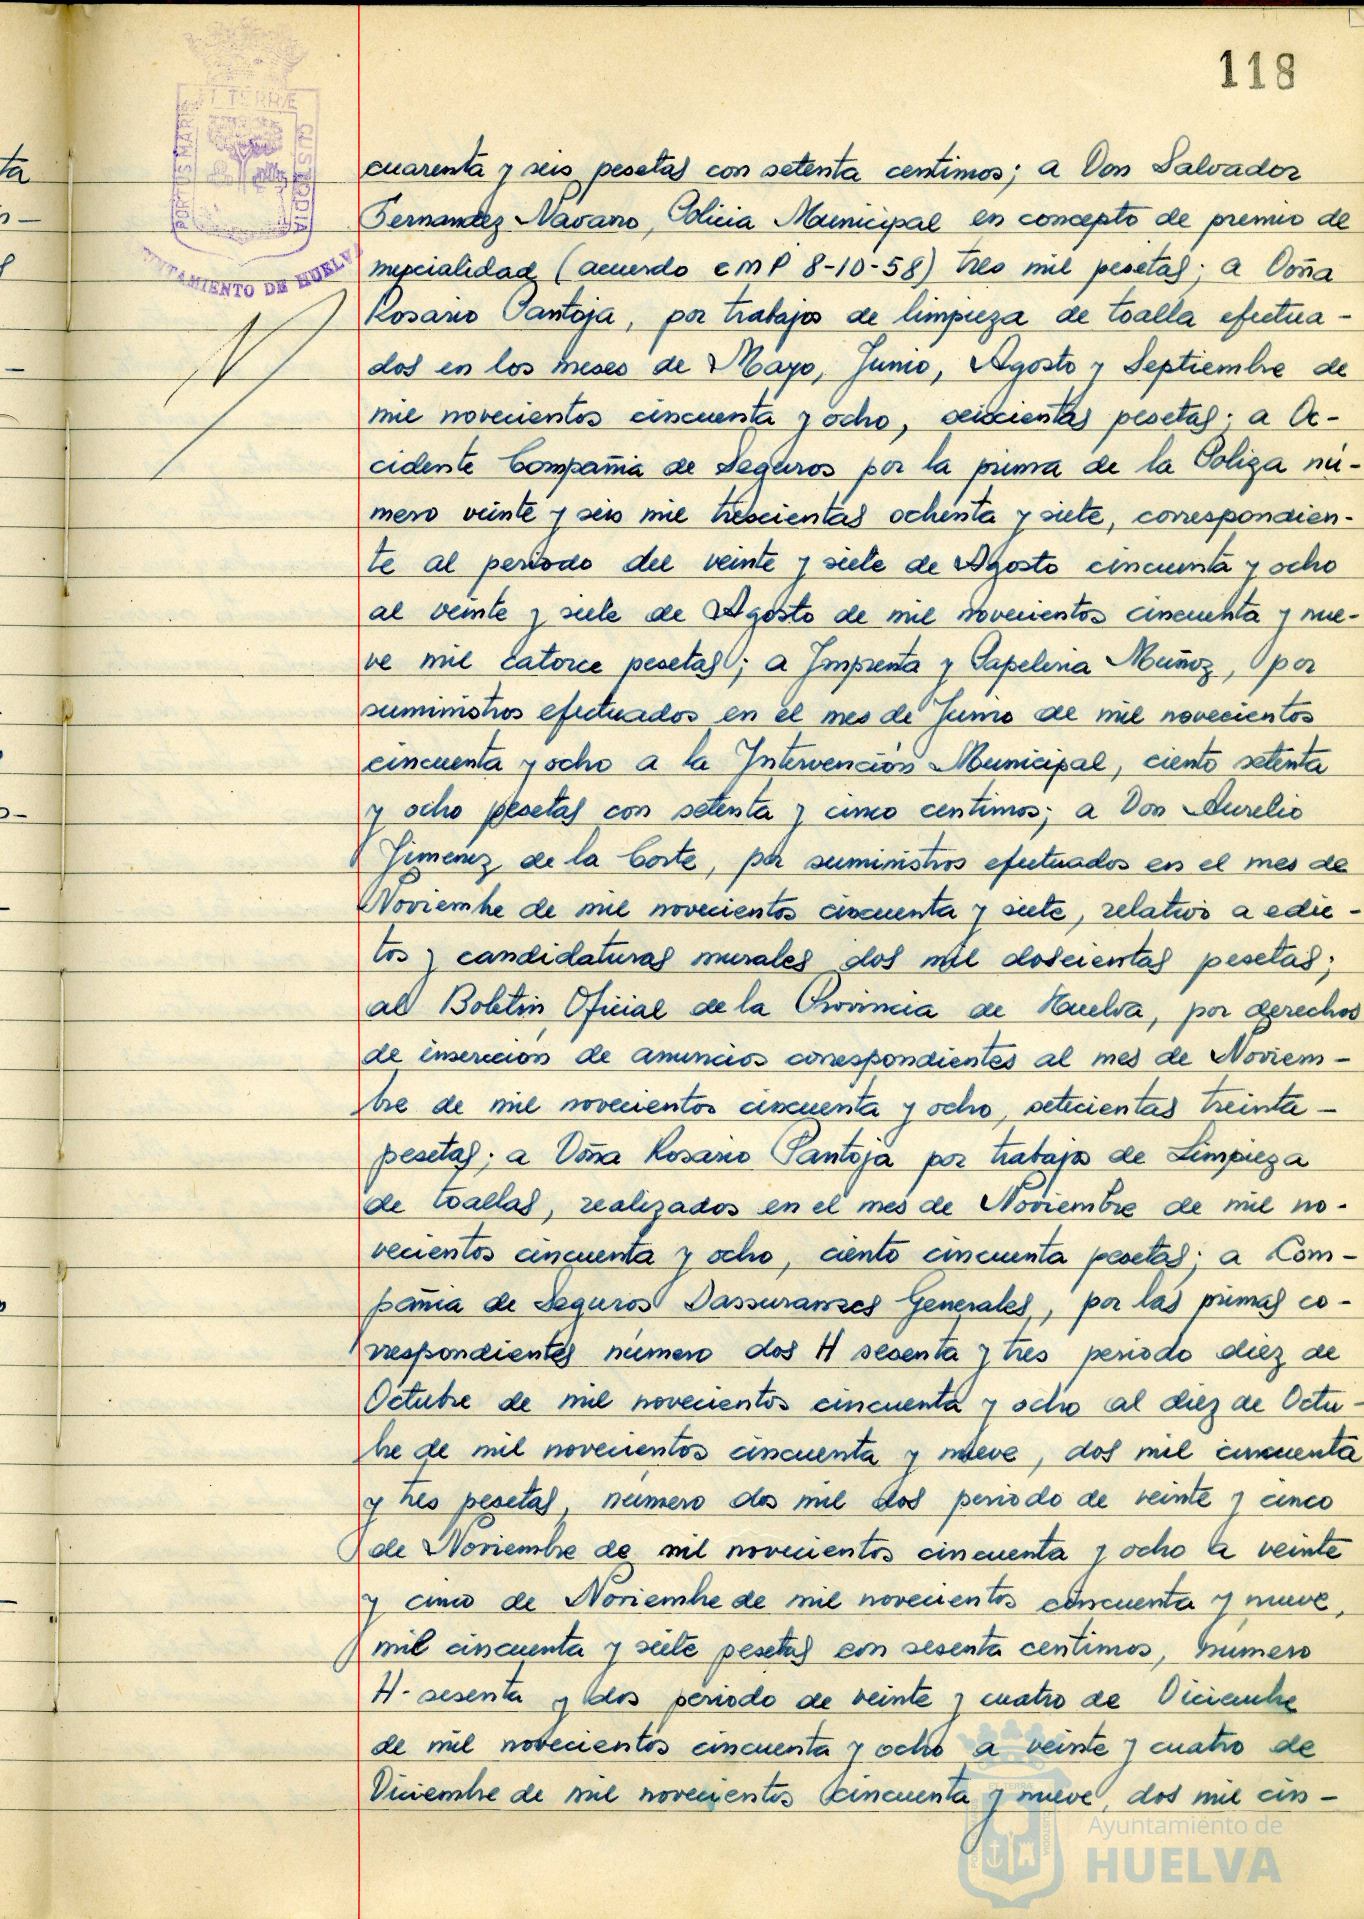 118
PORTUS MARIS ET TERRÆ CUSTODIA
AYUNTAMIENTO DE HUELVA
cuarenta y seis pesetas con setenta centimos; a Don Salvador
Fernandez Navarro, Policia Municipal en concepto de premio de
nupcialidad (acuerdo CMP 8-10-58) tres mil pesetas; a Doña
Rosario Pantoja, por trabajos de limpieza de toalla efectua-
dos en los meses de Mayo, Junio, Agosto y Septiembre de
mil novecientos cincuenta y ocho, seiscientas pesetas; a Oc-
cidente Compañia de Seguros por la prima de la Poliza nú-
mero veinte y seis mil trescientas ochenta y siete, correspondien-
te al periodo del veinte y siete de Agosto cincuenta y ocho
al veinte y siete de Agosto de mil novecientos cincuenta y nue-
ve mil catorce pesetas; a Imprenta y Papeleria Muñoz, por
suministros efectuados en el mes de Junio de mil novecientos
cincuenta y ocho a la Intervención Municipal, ciento setenta
y ocho pesetas con setenta y cinco centimos; a Don Aurelio
Jimenez de la Corte, por suministros efectuados en el mes de
Noviembre de mil novecientos cincuenta y siete, relativo a edic-
tos y candidaturas murales dos mil doscientas pesetas;
al Boletin Oficial de la Provincia de Huelva, por derechos
de inserción de anuncios correspondientes al mes de Noviem-
bre de mil novecientos cincuenta y ocho, setecientas treinta-
pesetas; a Doña Rosario Pantoja por trabajo de Limpieza
de toallas, realizados en el mes de Noviembre de mil no-
vecientos cincuenta y ocho, ciento cincuenta pesetas; a Com-
pañia de Seguros Dassuranses Generales, por las primas co-
rrespondientes número dos H sesenta y tres periodo diez de
Octubre de mil novecientos cincuenta y ocho al diez de Octu-
bre de mil novecientos cincuenta y nueve, dos mil cincuenta
y tres pesetas, número dos mil dos periodo de veinte y cinco
de Noviembre de mil novecientos cincuenta y ocho a veinte
y cinco de Noviembre de mil novecientos cincuenta y nueve,
mil cincuenta y siete pesetas con sesenta centimos, número
H-sesenta y dos periodo de veinte y cuatro de Diciembre
de mil novecientos cincuenta y ocho a veinte y cuatro de
Diciembre de mil novecientos cincuenta y nueve, dos mil cin-
Ayuntamiento de
HUELVA